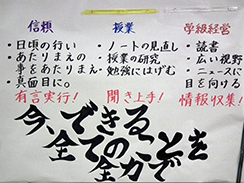 信頼
・日頃の行い
・あたりまえの
事をあたりまえ・
真面目に。
有言実行!
授業
・ノートの見直し
・授業の研究
・勉強にはげむ
聞き上手!
学級経営
・読書
・広い視野
・ニュースに
目を向ける
情報収集!
今、できることを
全ての全力で